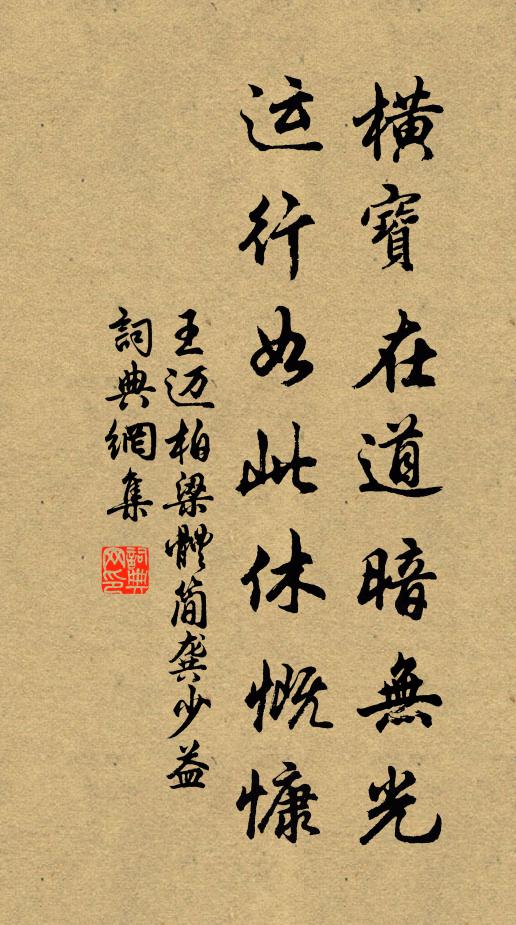 橫寶在道暗無光
运行如此休慨慷
王迈柏梁體简龚少益
詞典網集
詞典网印